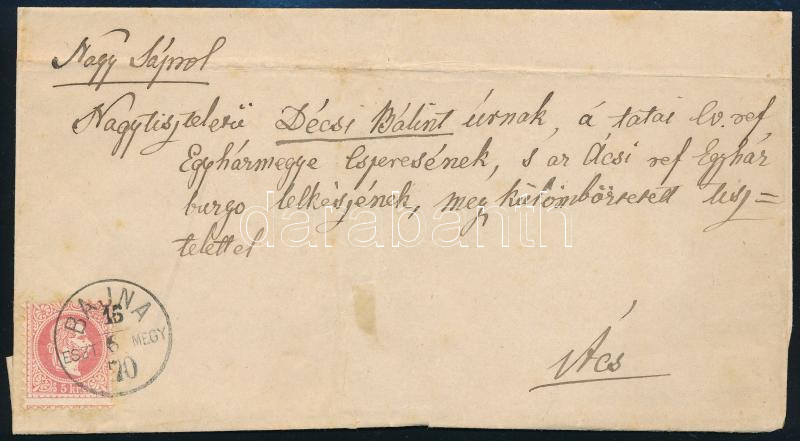 Nagy Sáprol
Nagytisztelerü Décsi Bálint úrnak, á tatai Ev. ref
Egyházmegye Esperesének, s az Ácsi ref Egyház
buzgo lelkészjének, meg külömböztetett tisz=
telettel
Ács
BAJNA
15
ESZT. 6 MEGY
70
5 KR
darabanth